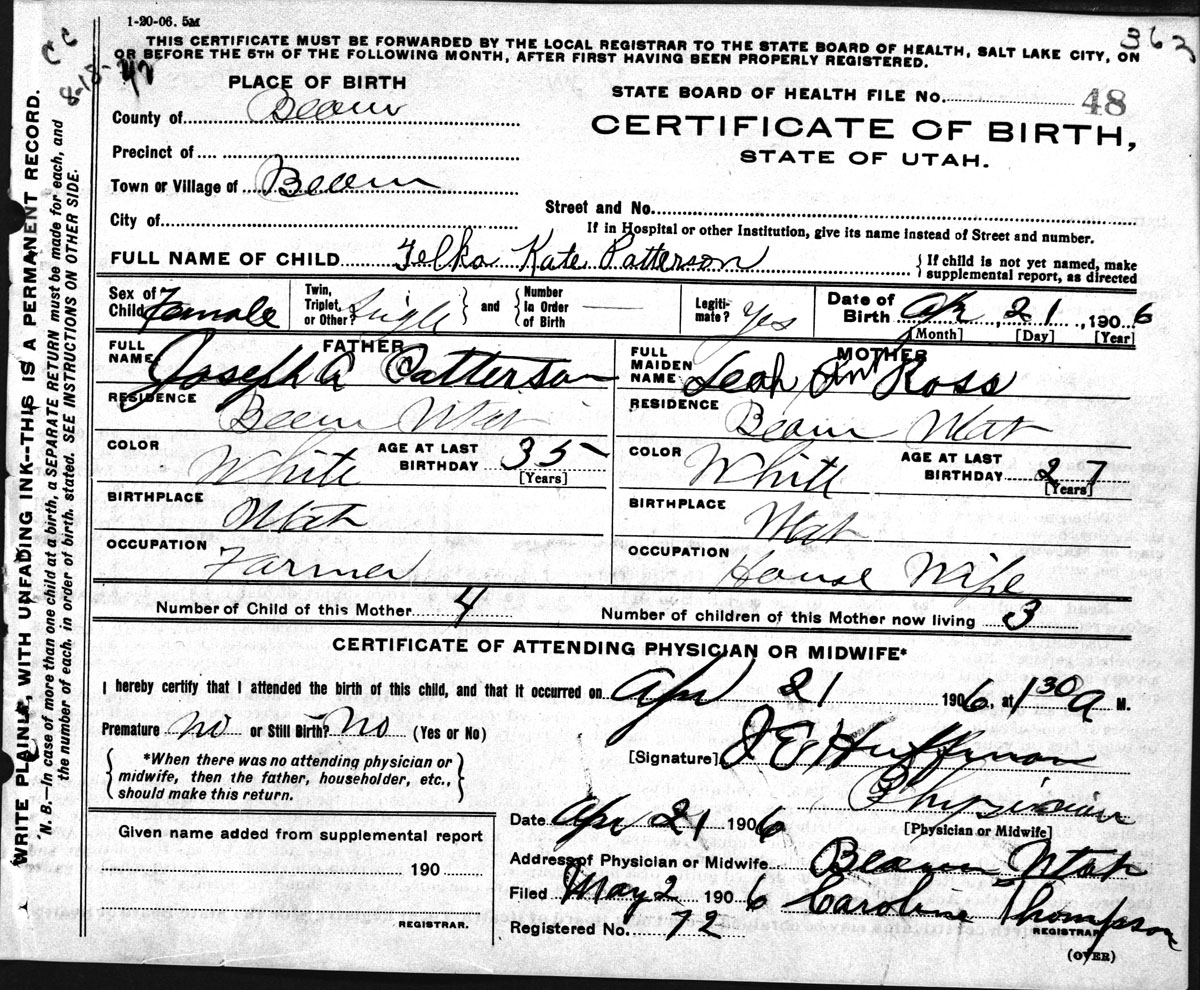 1-20-06. 5M
363
THIS CERTIFICATE MUST BE FORWARDED BY THE LOCAL REGISTRAR TO THE STATE BOARD OF HEALTH, SALT LAKE CITY, ON
OR BEFORE THE 5TH OF THE FOLLOWING MONTH, AFTER FIRST HAVING BEEN PROPERLY REGISTERED.
CC
8-18-42
WRITE PLAINLY, WITH UNFADING INK--THIS IS A PERMANENT RECORD.
N. B.—In case of more than one child at a birth, a SEPARATE RETURN must be made for each, and
the number of each, in order of birth, stated. SEE INSTRUCTIONS ON OTHER SIDE.
PLACE OF BIRTH
STATE BOARD OF HEALTH FILE No. 48
County of Beaver
CERTIFICATE OF BIRTH,
Precinct of
STATE OF UTAH.
Town or Village of Beaver
City of
Street and No.
If in Hospital or other Institution, give its name instead of Street and number.
FULL NAME OF CHILD Telka Kate Patterson
{If child is not yet named, make
supplemental report, as directed
Sex of Child Female
Twin, Triplet, or Other? Single } and { Number in Order of Birth —
Legitimate? Yes
Date of Birth Ap, 21, 1906
[Month] [Day] [Year]
FATHER
FULL NAME Joseph A Patterson
RESIDENCE Beaver Utah
COLOR White AGE AT LAST BIRTHDAY 35 [Years]
BIRTHPLACE Utah
OCCUPATION Farmer
MOTHER
FULL MAIDEN NAME Leah Ant Ross
RESIDENCE Beaver Utah
COLOR White AGE AT LAST BIRTHDAY 27 [Years]
BIRTHPLACE Utah
OCCUPATION House Wife
Number of Child of this Mother 4 Number of children of this Mother now living 3
CERTIFICATE OF ATTENDING PHYSICIAN OR MIDWIFE*
I hereby certify that I attended the birth of this child, and that it occurred on Apr 21 1906, at 1 30 a M.
Premature no or Still Birth? no (Yes or No)
{ *When there was no attending physician or
midwife, then the father, householder, etc.,
should make this return. }
[Signature] J E Huffman
Physician
[Physician or Midwife]
Date Apr 21 1906
Address of Physician or Midwife Beaver Utah
Filed May 2 1906 Caroline Thompson
REGISTRAR
Registered No. 72
Given name added from supplemental report
190
REGISTRAR.
(OVER)